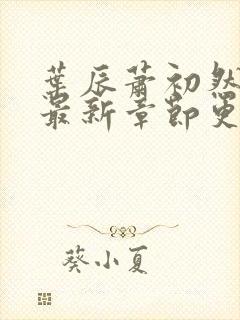 葉辰蕭初然
最新章節更
葵小夏